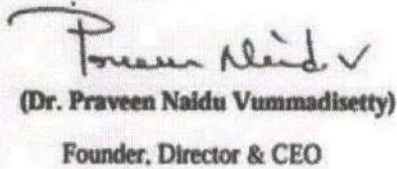 Praveen Naidu V
(Dr. Praveen Naidu Vummadisetty)
Founder, Director & CEO